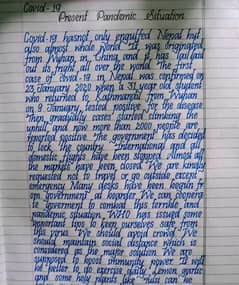 Covid-19
Present Pandemic Situation
Covid-19 hasnot only engulfed Nepal but
also almost whole world. It was originated
from Wuhan, in China, and it has laid
out its fruits all over the world. The first
case of covid-19 in Nepal was confirmed on
23 January 2020 when a 31 year old student
who returned to Kathmandu from Wuhan
on 9 January, tested positive for the disease
Then gradually cases started climbing the
uphill and now more than 2000 people are
reported positive. The government has decided
to lock the country. International and all
domestic flights have been stopped. Almost all
the markets have been closed. We are kindly
requested not to travel or go outside except
emergency. Many desks have been begun from
government at boarder. We can cooperate
to goverment to combad this terrible and
pandemic situation. WHO has issued some
important tips to keep ourselves safe from
this virus. We should avoid crowd. We
should maintain social distance which is
considered as the major solution. We are
supposed to boost immunity power. It will
be better to do exercise daily. Lemon, garlic
and some holy herbs like can be